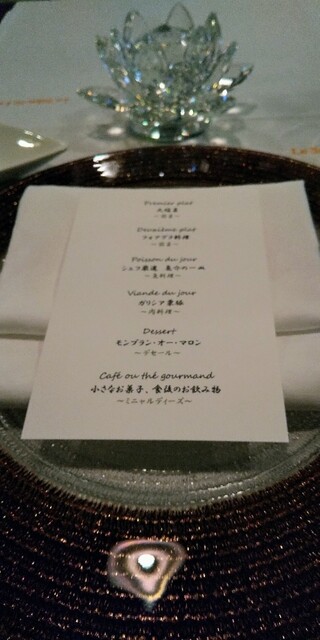 Premier plat
～前菜～
Deuxième plat
フォアグラ料理
～前菜～
Poisson du jour
シェフ厳選 魚の一皿
～魚料理～
Viande du jour
ガリシア栗豚
～肉料理～
Dessert
モンブラン・オー・マロン
～デセール～
Café ou thé gourmand
小さなお菓子、食後のお飲み物
～ミニャルディーズ～